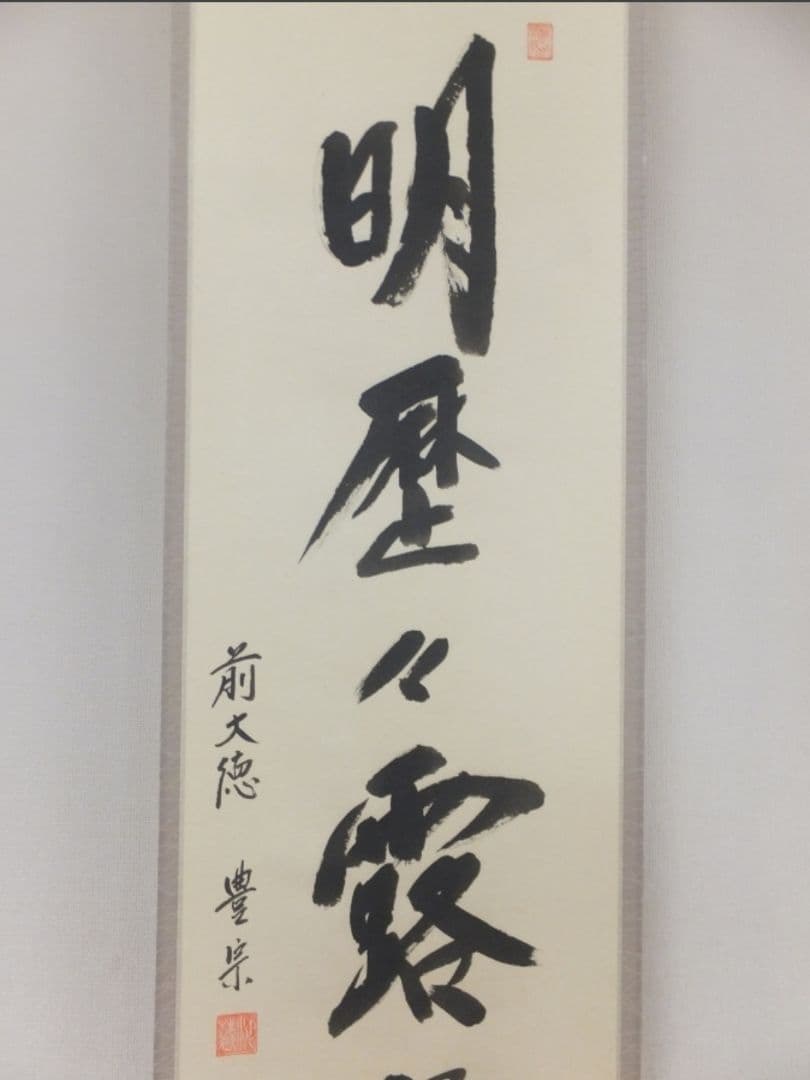 明歴々露
前大徳 豊宗